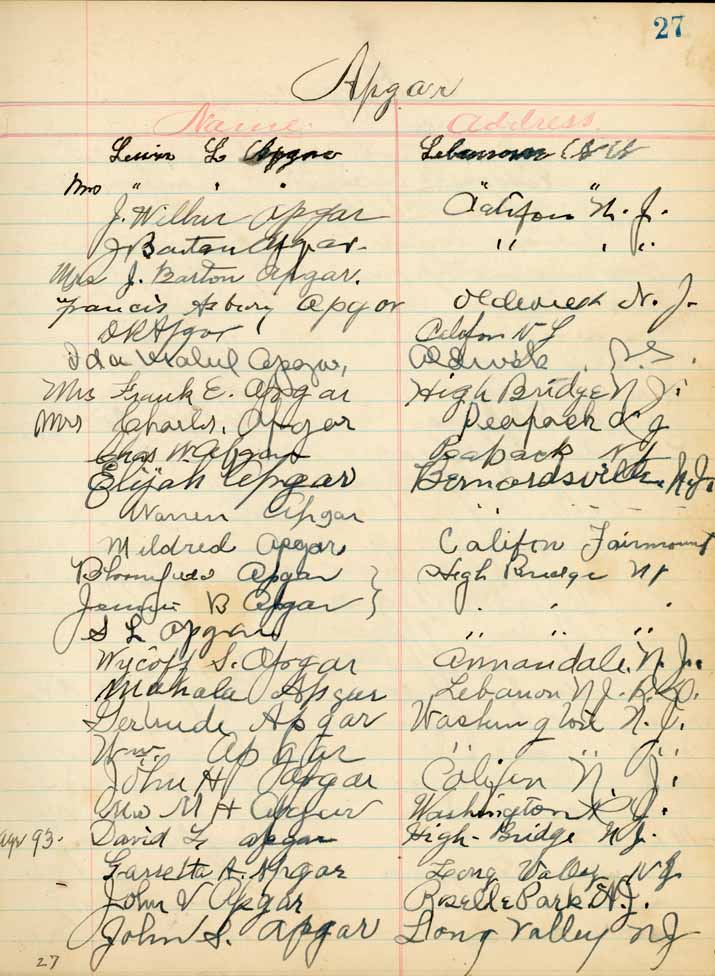 27
Apgar
Name Address
Lewis L Apgar Lebanon
Mrs " " "
J. Wilbur Apgar "Califon" N. J.
J Barton Apgar. " " "
Mrs J. Barton Apgar.
Francis Asbury Apgar Oldwick N. J.
Apgar Califon N J
Ida Mabel Apgar, Oldwick N. J.
Mrs Frank E. Apgar High Bridge N J.
Mrs Charles, Apgar Peapack N J
Chas W. Apgar Peapack N J
Elijah Apgar Bernardsville N. J.
Warren Apgar " " "
Mildred Apgar Califon Fairmount
Bloomfield Apgar } High Bridge NJ
Jennie B Apgar } " " "
S L Apgar " " "
Wycoff S. Apgar Annandale, N. J.
Mahala Apgar Lebanon N J. R.D.
Gertrude Apgar Washington N. J.
Wm. Apgar " " "
John H Apgar Califon N J.
Mrs M H Apgar Washington N J.
age 93. David L Apgar High-Bridge N. J.
Garretta A. Apgar Long Valley N J.
John V Apgar Roselle Park N. J.
John S. Apgar Long Valley NJ
27